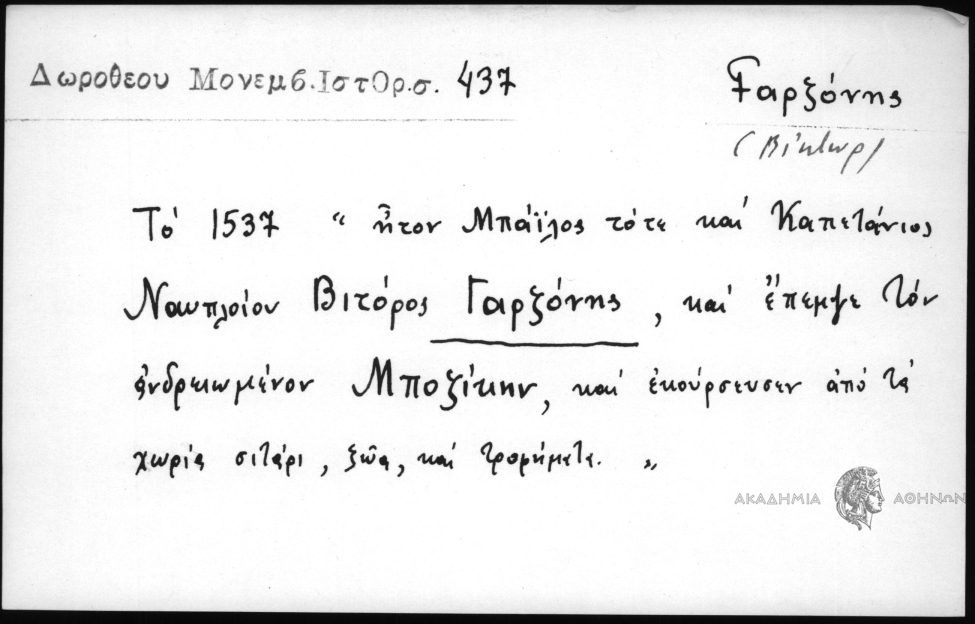 Δωροθεου Μονεμβ.ΙστΟρ.σ. 437
Γαρζόνης
(Βίκτωρ)
Τό 1537 " ἦτον Μπάϊλος τότε καί Καπετάνιος
Ναυπλοίου Βιτόρος Γαρζόνης, καί ἔπεμψε τόν
ἀνδρειωμένον Μποζίκην, καί ἐκούρσευσεν ἀπό τά
χωρία σιτάρι, ζῶα, καί τροφήματα. "
ΑΚΑΔΗΜΙΑ ΑΘΗΝΩΝ